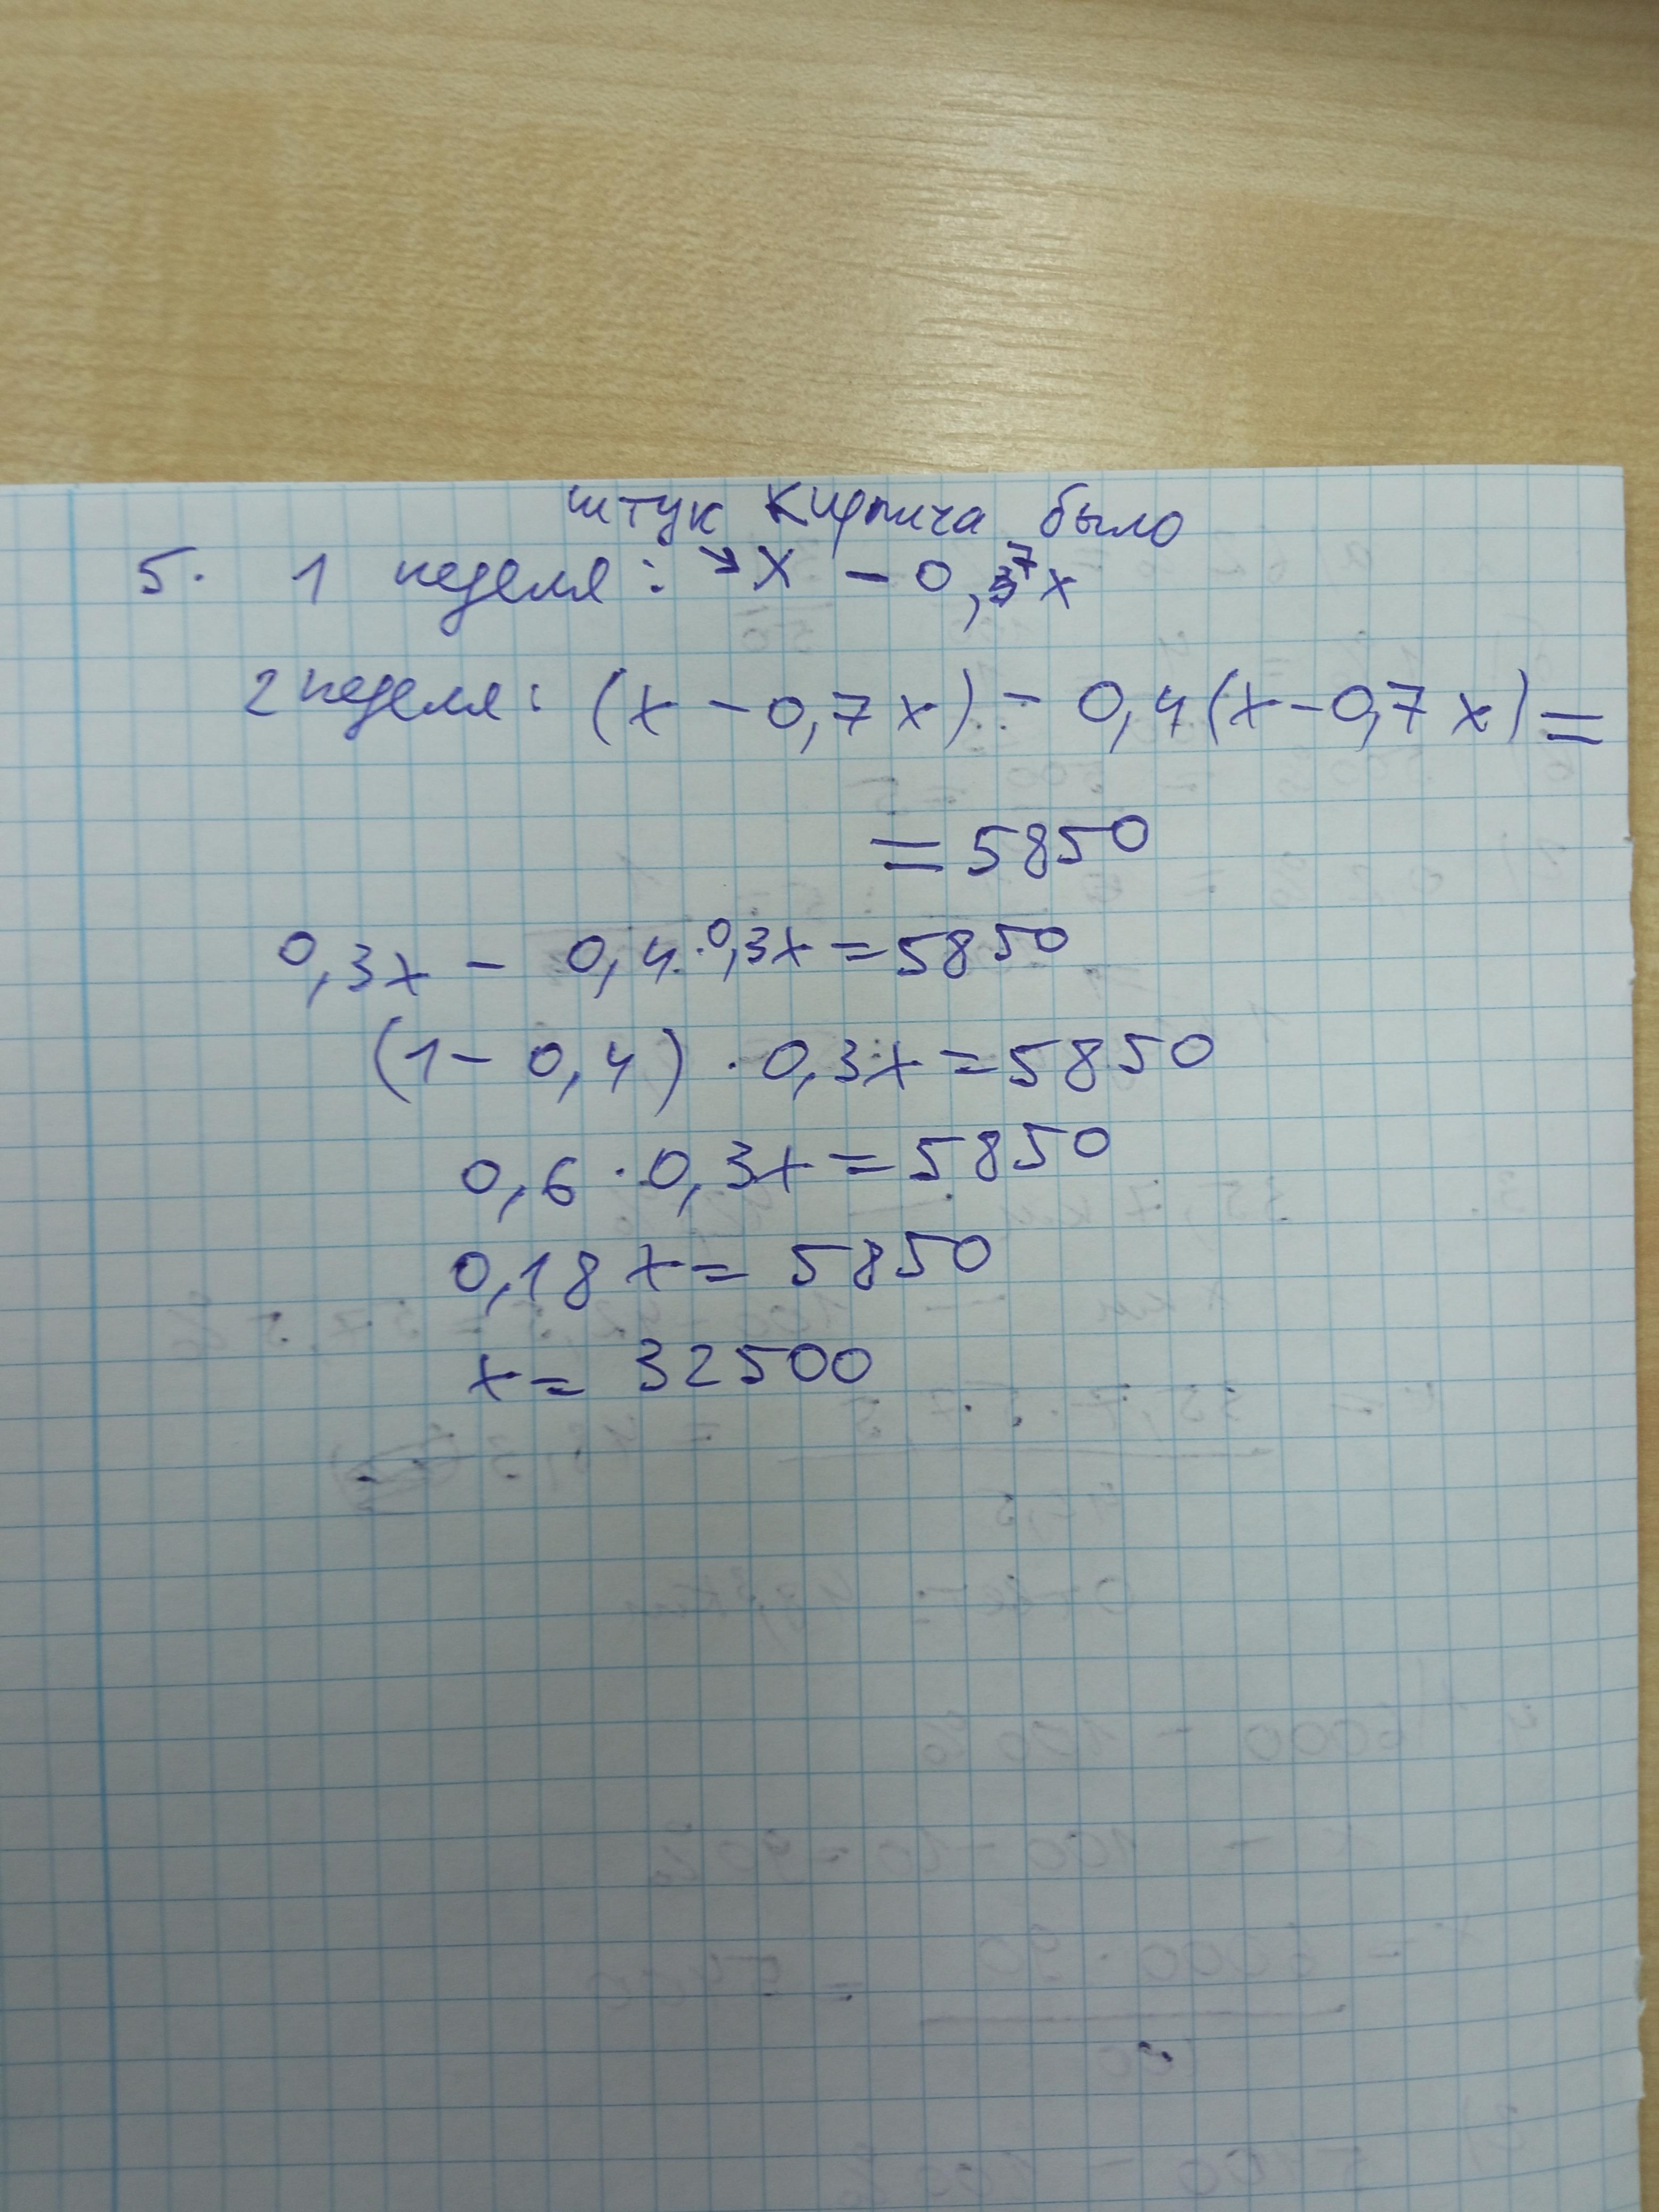 штук кирпича было
5. 1 неделя: → x − 0,7x
2 неделя: (x − 0,7x) − 0,4(x − 0,7x) =
= 5850
0,3x − 0,4 · 0,3x = 5850
(1 − 0,4) · 0,3x = 5850
0,6 · 0,3x = 5850
0,18x = 5850
x = 32500